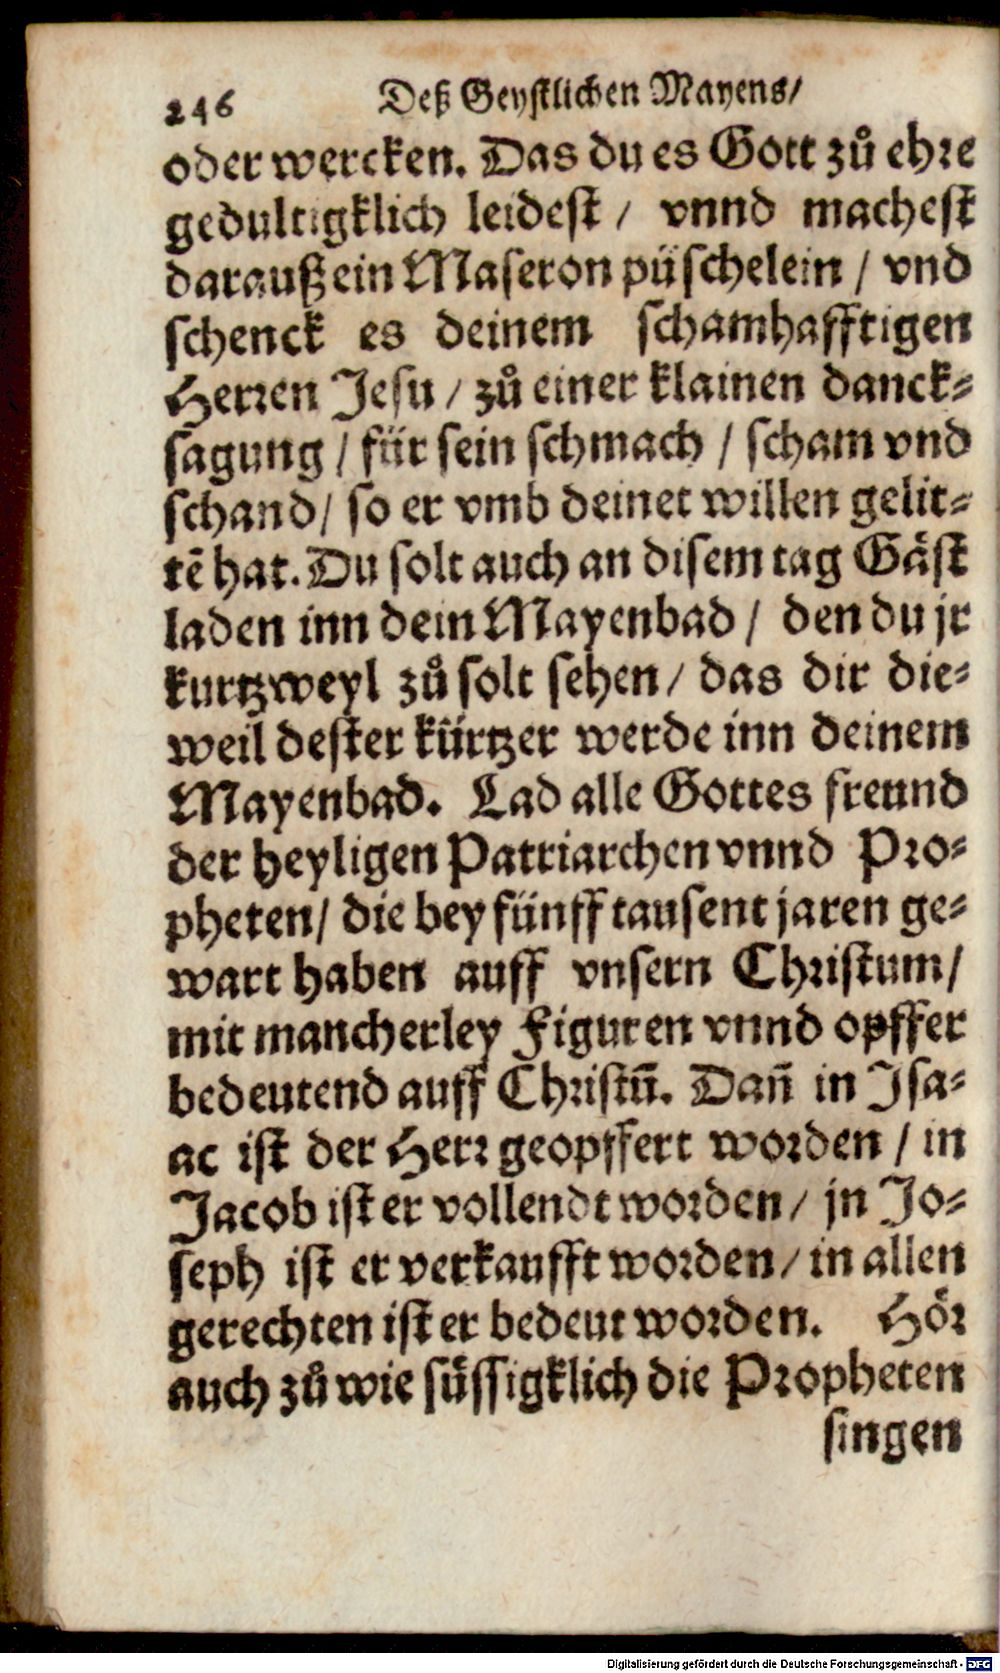 246 Deß Geystlichen Mayens/
oder wercken. Das du es Gott zů ehre
gedultigklich leidest / vnnd machest
darauß ein Maseron püschelein / vnd
schenck es deinem schamhafftigen
Herren Jesu / zů einer klainen danck-
sagung / für sein schmach / scham vnd
schand / so er vmb deinet willen gelit-
tē hat. Du solt auch an disem tag Gäst
laden inn dein Mayenbad / den du jr
kurtzweyl zů solt sehen / das dir die-
weil dester kürtzer werde inn deinem
Mayenbad. Lad alle Gottes freund
der heyligen Patriarchen vnnd Pro-
pheten / die bey fünff tausent jaren ge-
wart haben auff vnsern Christum /
mit mancherley Figuren vnnd opffer
bedeutend auff Christū. Dañ in Isa-
ac ist der Herr geopffert worden / in
Jacob ist er vollendt worden / jn Jo-
seph ist er verkaufft worden / in allen
gerechten ist er bedeut worden. Hör
auch zů wie süssigklich die Propheten
singen
Digitalisierung gefördert durch die Deutsche Forschungsgemeinschaft - DFG